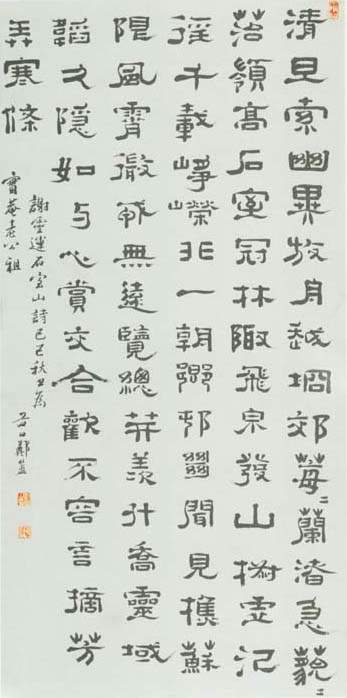 清旦索幽異放舟越坰郊莓〻蘭渚急藐〻
苔嶺高石室冠林陬飛泉發山椒虛汎
徑千載崢嶸非一朝鄉邨絕聞見樵蘇
限風霄微戎無遠覽總笄羨升喬靈域
韜久隱如与心賞交合歡不容言摘芳
弄寒條
謝靈運石室山詩己巳秋日為
寶菴老公祖
谷口鄭簠